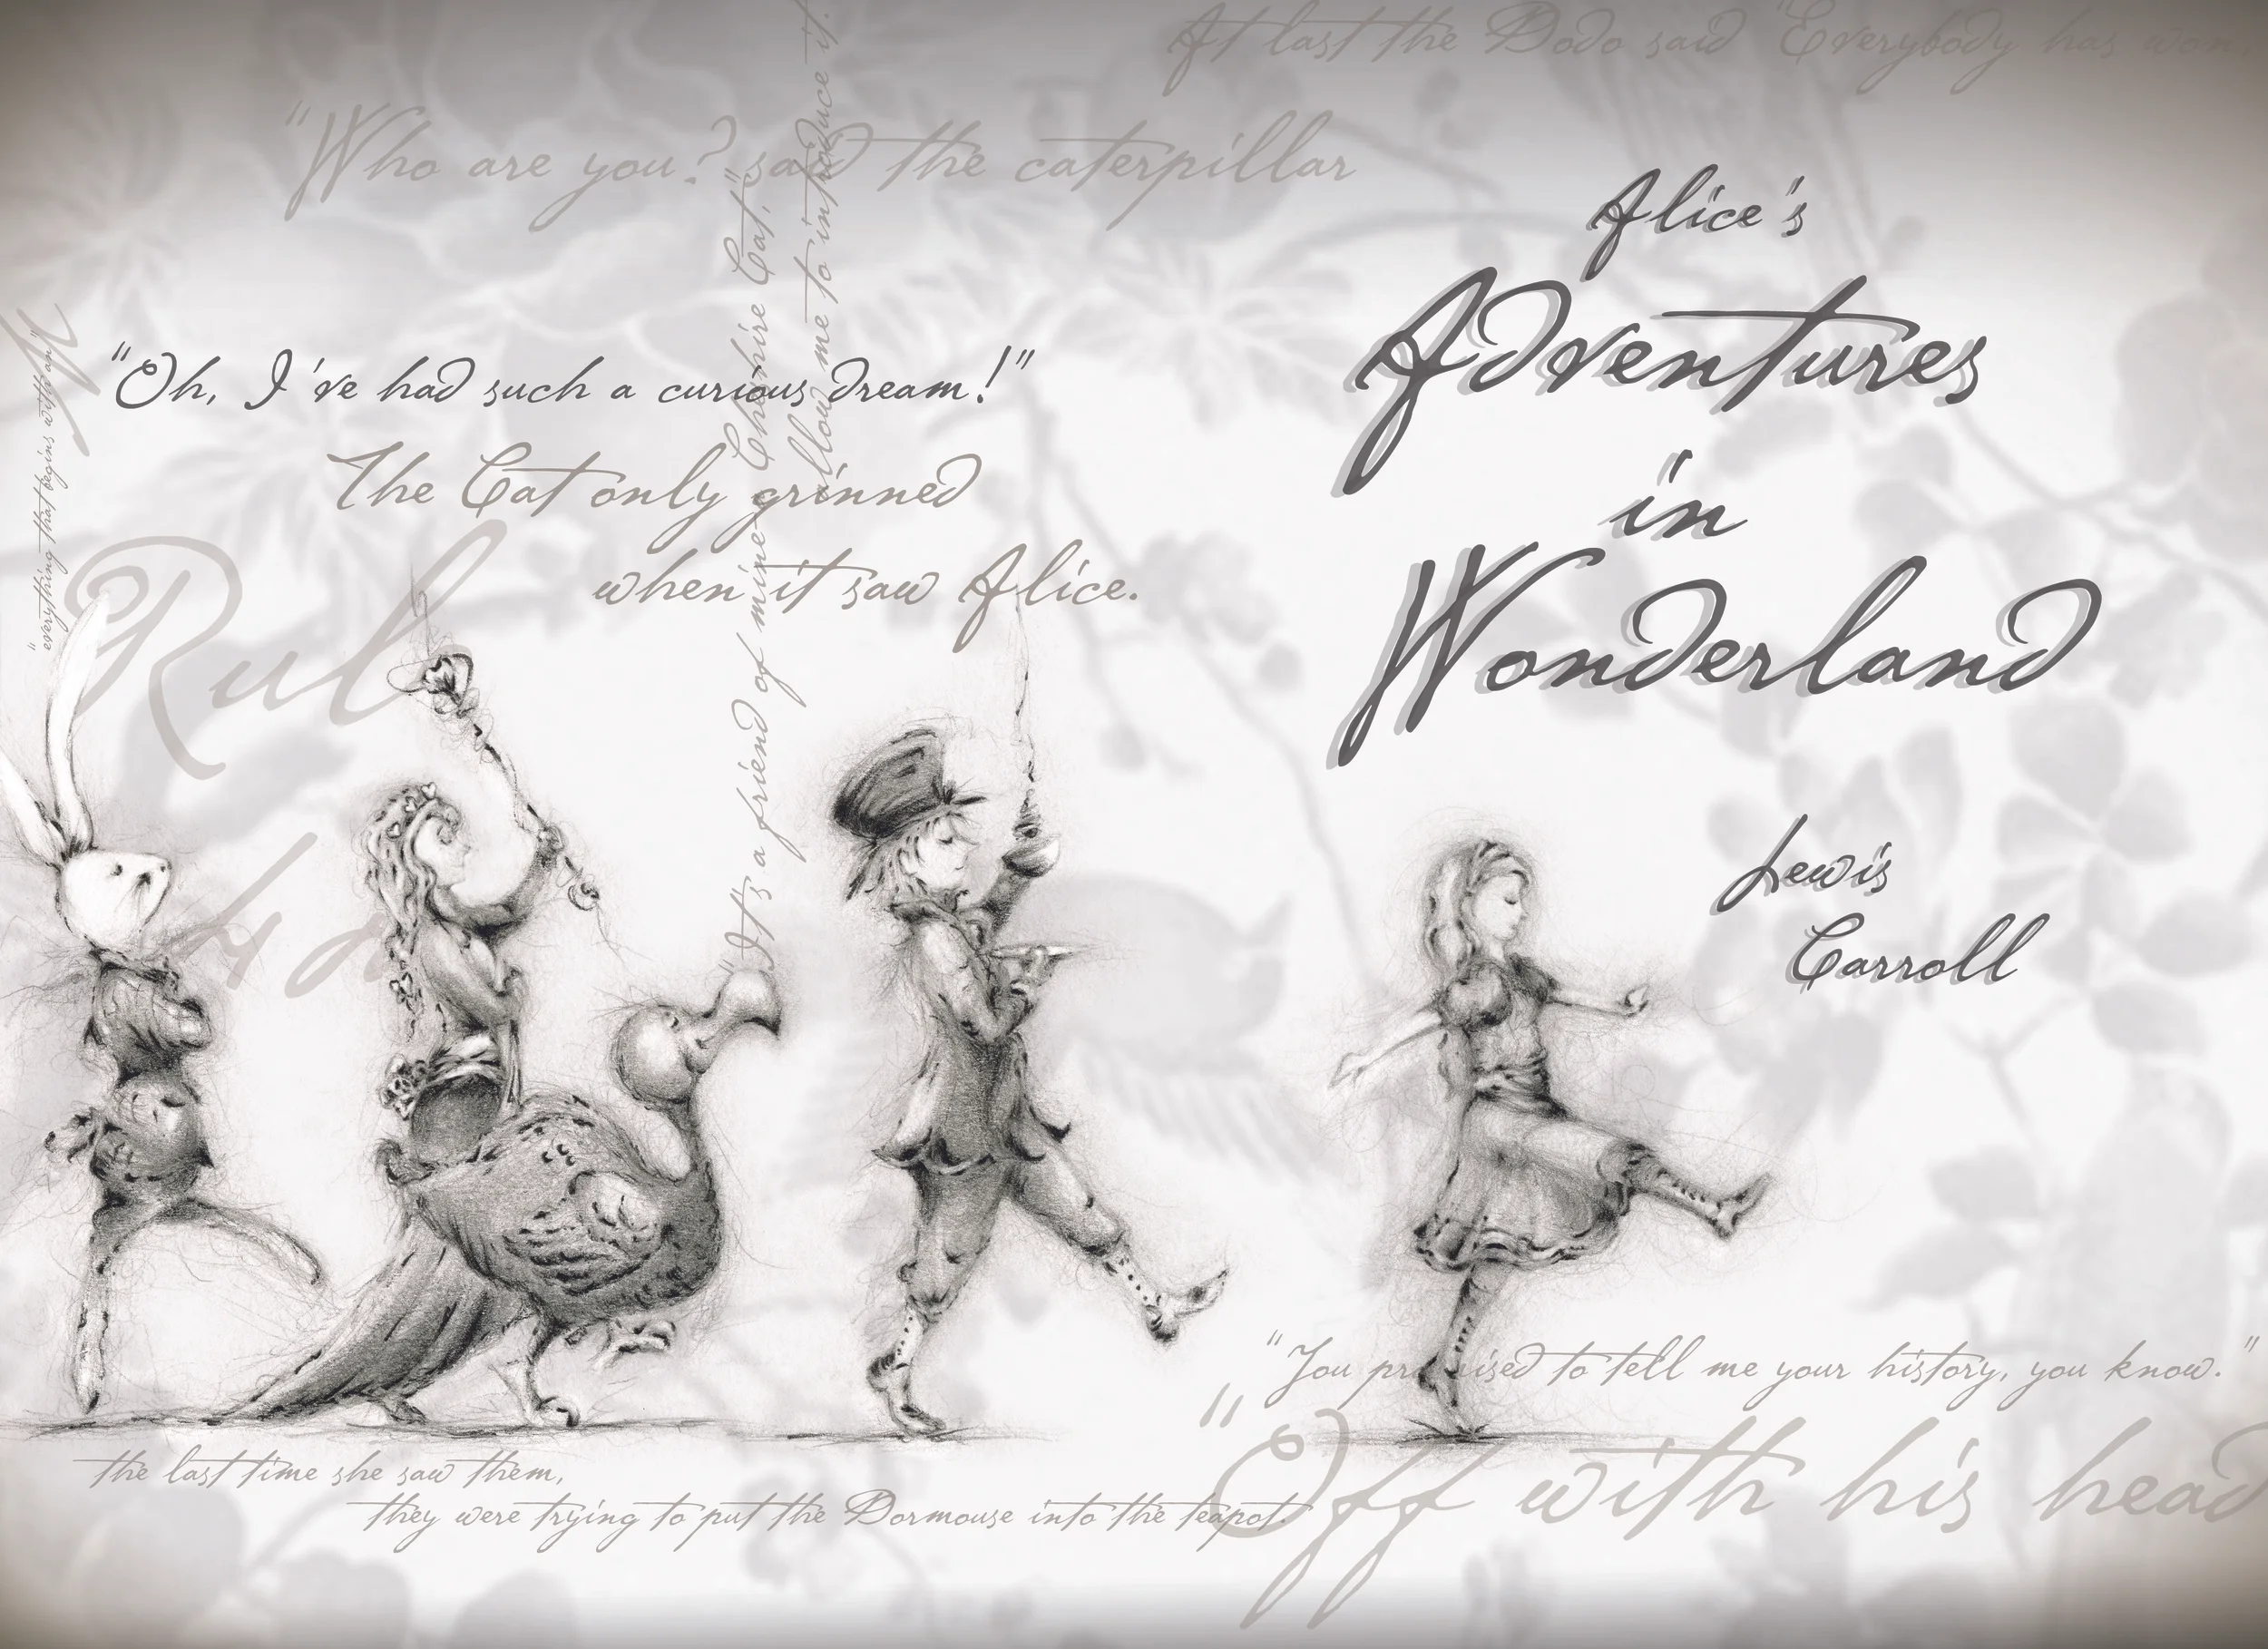 At last the Dodo said "Everybody has won,
"Who are you? said the caterpillar
Alice's
Adventures
in
Wonderland
Lewis
Carroll
"Oh, I've had such a curious dream!"
The Cat only grinned
when it saw Alice.
"It's a friend of mine- a Cheshire Cat,"
allow me to introduce it.
"everything that begins with an"
M
Rul
42
"You promised to tell me your history, you know."
"Off with his head
the last time she saw them,
they were trying to put the Dormouse into the teapot.